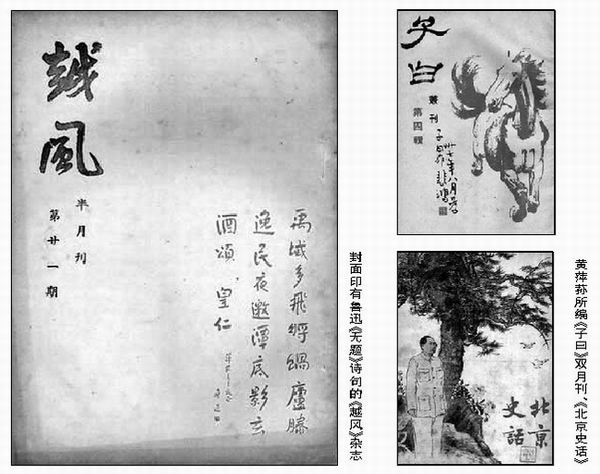 越風
半月刊
第廿一期
禹域多飛將蝸廬賸
逸民夜邀潭底影玄
酒頌皇仁
魯迅
封面印有鲁迅《无题》诗句的《越风》杂志
子曰
叢刊
第四輯
悲鴻
北京
史話
黄萍荪所编《子曰》双月刊、《北京史话》